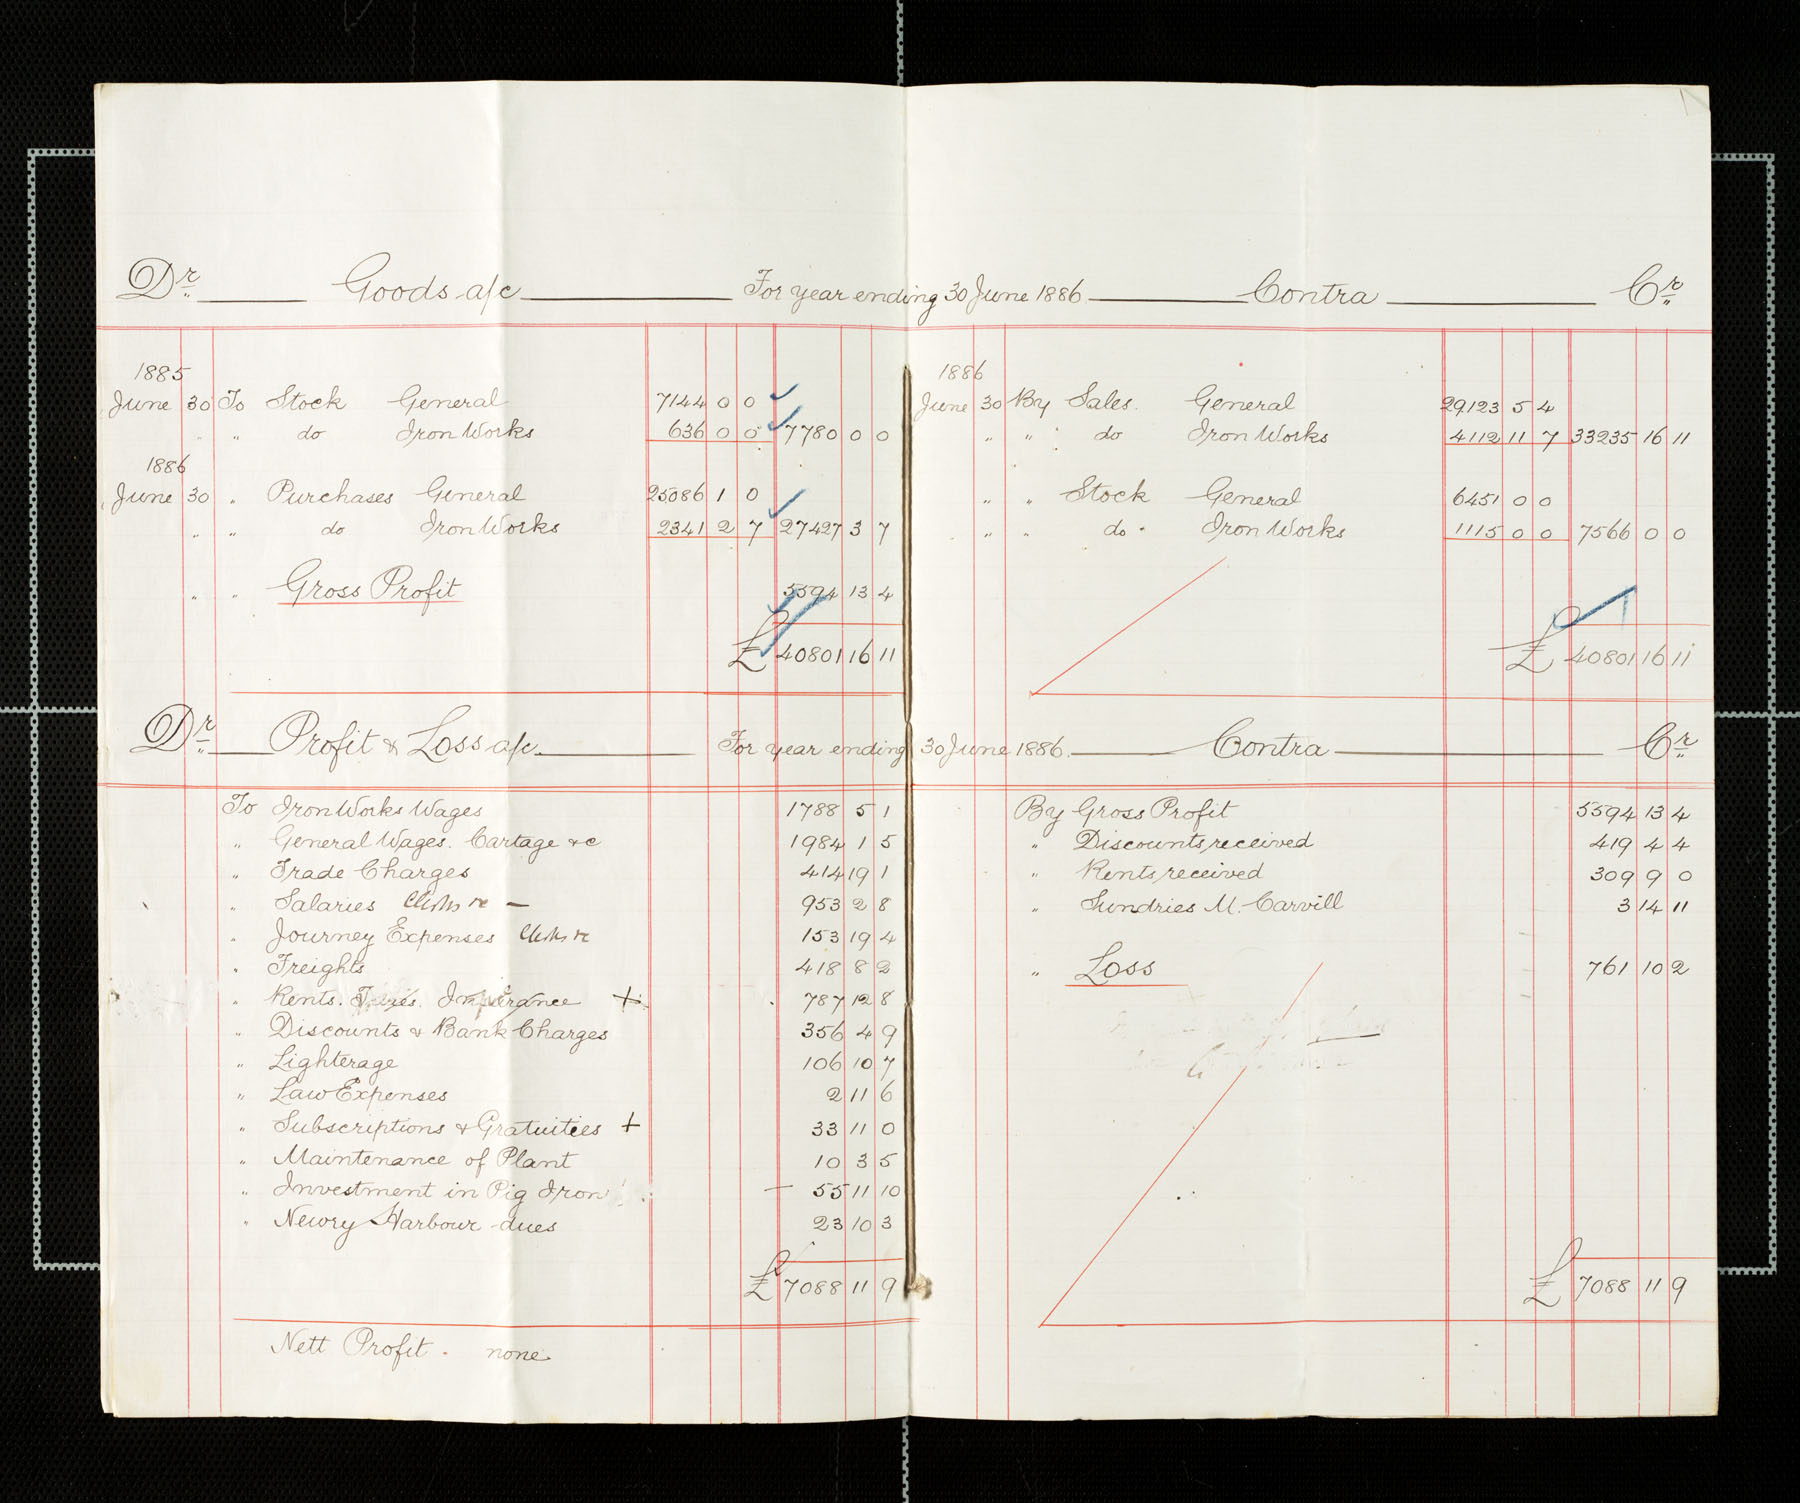 Dr Goods a/c For year ending 30 June 1886 Contra Cr
1885
June 30 To Stock General 7144 0 0
" " do Iron Works 636 0 0 7780 0 0
1886
June 30 " Purchases General 25086 1 0
" " do Iron Works 2341 2 7 27427 3 7
" " Gross Profit 5594 13 4
£ 40801 16 11
1886
June 30 By Sales. General 29123 5 4
" " do Iron Works 4112 11 7 33235 16 11
" " Stock General 6451 0 0
" " do Iron Works 1115 0 0 7566 0 0
£ 40801 16 11
Dr Profit & Loss a/c For year ending 30 June 1886. Contra Cr
To Iron Works Wages 1788 5 1
" General Wages. Cartage &c 1984 1 5
" Trade Charges 414 19 1
" Salaries 953 2 8
" Journey Expenses 153 19 4
" Freights 418 8 2
" Rents. Taxes. Insurance + 787 12 8
" Discounts & Bank Charges 356 4 9
" Lighterage 106 10 7
" Law Expenses 2 11 6
" Subscriptions & Gratuities + 33 11 0
" Maintenance of Plant 10 3 5
" Investment in Pig Iron 55 11 10
" Newry Harbour dues 23 10 3
£ 7088 11 9
Nett Profit . none
By Gross Profit 5594 13 4
" Discounts received 419 4 4
" Rents received 309 9 0
" Sundries M. Carvill 3 14 11
" Loss 761 10 2
£ 7088 11 9